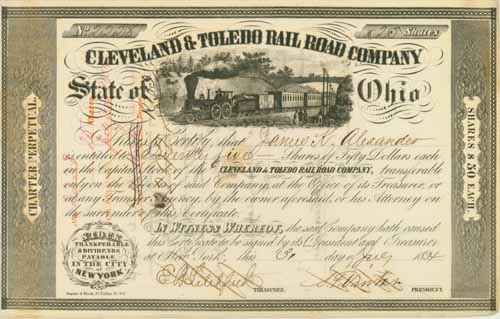 No.
Shares
CLEVELAND & TOLEDO RAIL ROAD COMPANY
State of Ohio
This is to Certify, that Alexander
is entitled to Shares of Fifty Dollars each
in the Capital Stock of the CLEVELAND & TOLEDO RAIL ROAD COMPANY, transferable
only on the Books of said Company, at the Office of its Treasurer, or
at any Transfer Agency, by the owner aforesaid, or his Attorney on
the surrender of this Certificate.
IN WITNESS WHEREOF, the said Company hath caused
this Certificate to be signed by its President and Treasurer
at New York, this of July
TREASURER.
PRESIDENT.
CHARTER PERPETUAL.
SHARES $50 EACH.
TRANSFERABLE
& DIVIDENDS
PAYABLE
IN THE CITY
OF
NEW YORK